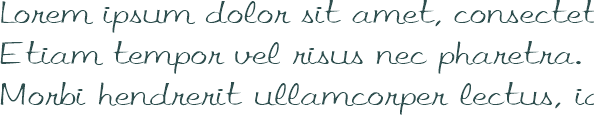 Lorem ipsum dolor sit amet, consectet
Etiam tempor vel risus nec pharetra.
Morbi hendrerit ullamcorper lectus, id